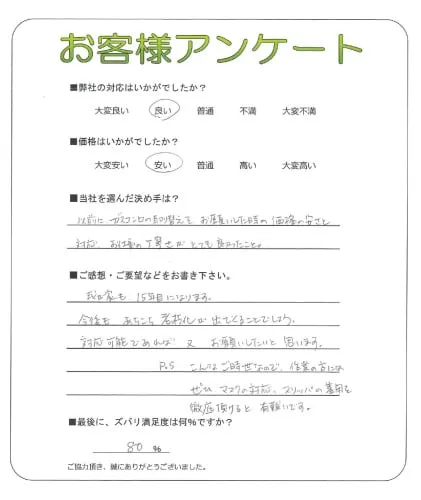 お客様アンケート
■弊社の対応はいかがでしたか？
大変良い 良い 普通 不満 大変不満
■価格はいかがでしたか？
大変安い 安い 普通 高い 大変高い
■当社を選んだ決め手は？
以前に ガスコンロの取り替えを お願いした時の 価格の安さと
対応、お仕事の丁寧さが とても良かったこと。
■ご感想・ご要望などをお書き下さい。
我が家も 15年目になります。
今後も あちこち 老朽化が 出てくることでしょう。
対応可能であれば 又 お願いしたいと 思います。
P.S こんなご時世なので、作業の方には
ぜひ マスクの対応、スリッパの着用を
徹底頂けると 有難いです。
■最後に、ズバリ満足度は何％ですか？
80 %
ご協力頂き、誠にありがとうございました。